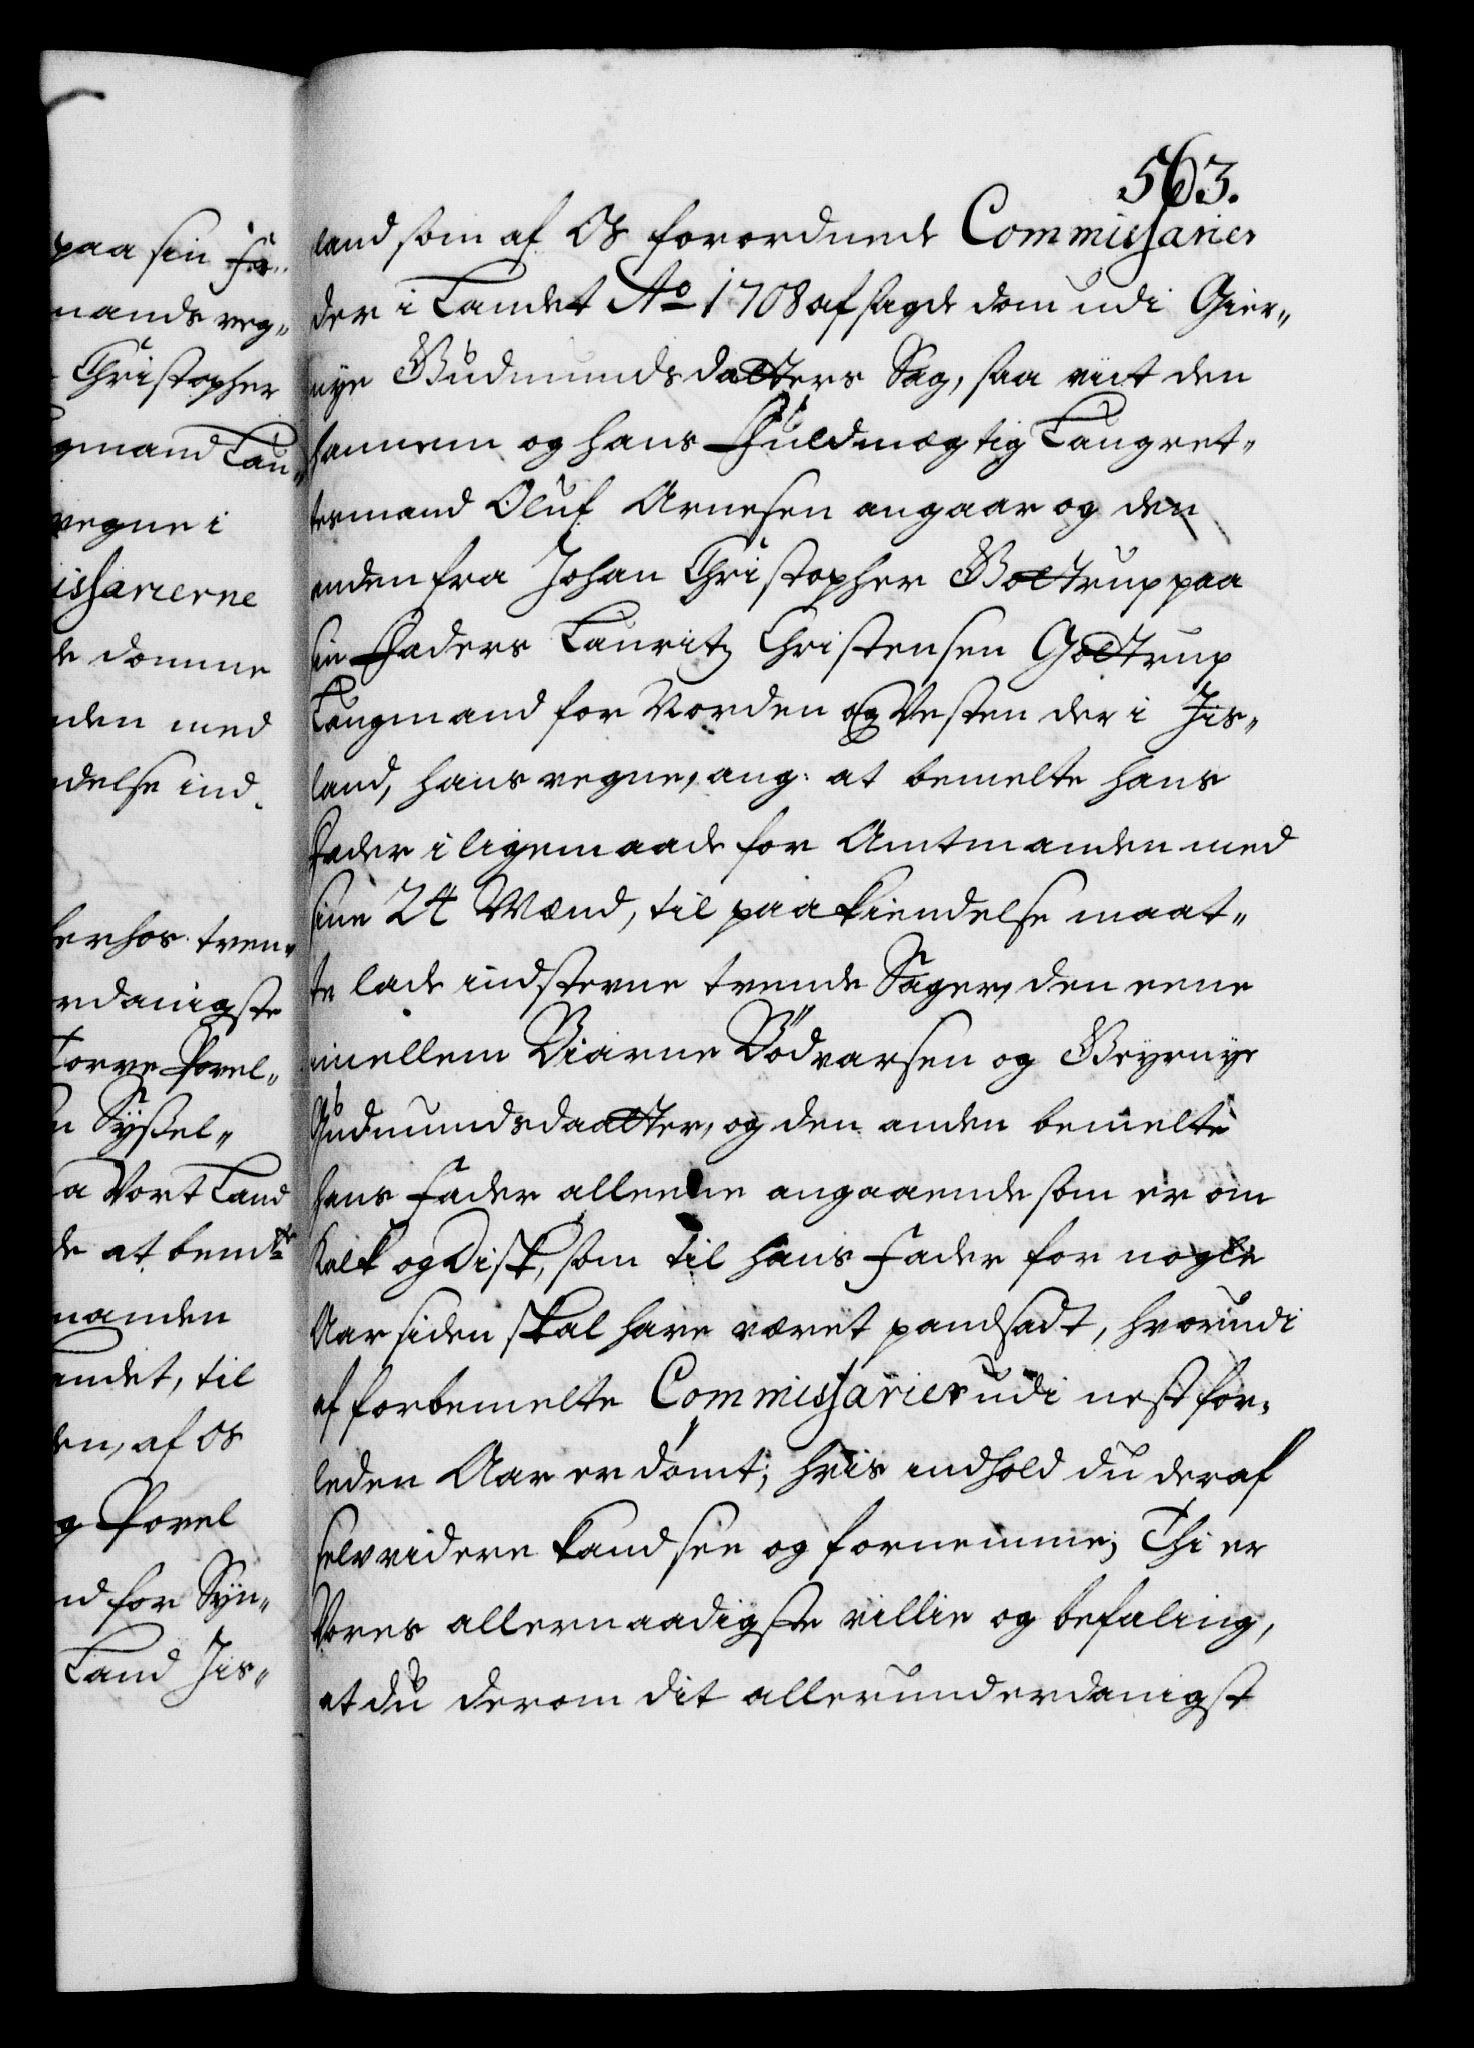 paa sin Fa„
mands veg„
Christopher
gmand Lau„
vegne i
issarierne
de domme
nden med
delse ind„
erhos tven„
rdanigste
Torve Povel„
n Syßel„
a Vort Land
de at bemte
manden
andet, til
den, af Os
g Povel
nd for Syn„
Land Jis„
563.
land som af Os forordnede Commissarier
der i Landet Ao 1708 afsagde dom udi Gier„
nye Gudmundsdatters Sag, saa vit den
hannem og hans Fuldmægtig Laugret„
tesmand Oluf Arnesen angaar og den
anden fra Johan Christopher Gottrup paa
sin Faders Lauritz Christensen Gottrup
Laugmand for Norden og Vesten der i Jis„
land, hans vegne, ang: at bemelte hans
Fader i ligemaade for Amtmanden med
sine 24 Mænd, til paakiendelse maat„
te lade indstevne tvende Sager, den eene
imellem Biarne Bödvarsen og Geyrnye
Gudmundsdaatter, og den anden bemelte
hans Fader alleene angaaende som er om
Kalk og Disk, som til hans Fader for nogle
Aar siden skal have været pandsadt, hvorudi
af forbemelte Commissarier udi nest for„
leden Aar er dömt; hvis indhold du deraf
selv videre kand see og fornemme; Thi er
Vores allernaadigste villie og befaling,
at du derom dit allerunderdanigst